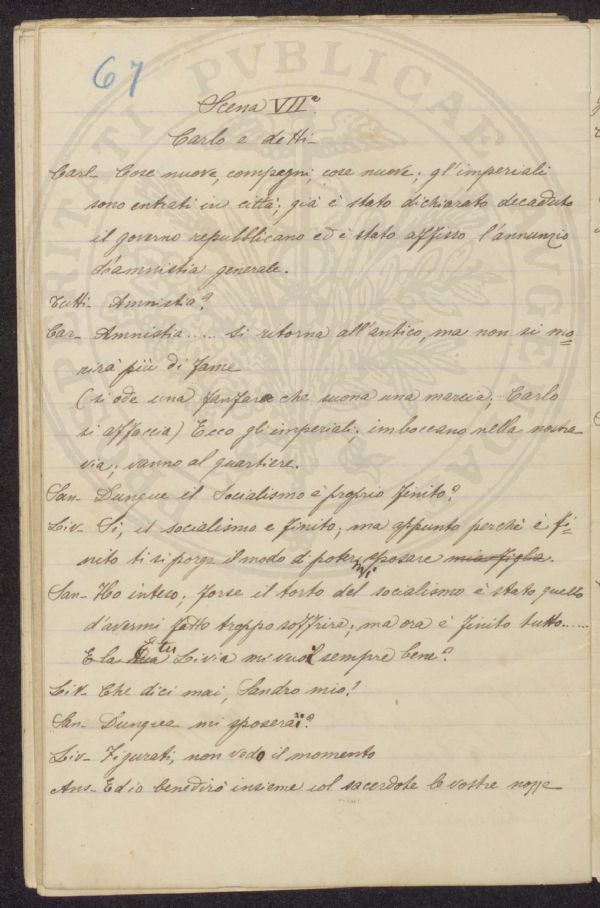 67
Scena VIIª
Carlo e detti-
Carl- Cose nuove, compagni, cose nuove; gl'imperiali
sono entrati in città; già è stato dichiarato decaduto
il governo repubblicano ed è stato affisso l'annunzio
d'amnistia generale.
Tutti- Amnistia?
Car- Amnistia..... si ritorna all'antico, ma non si mo=
rirà più di fame
(si ode una fanfara che suona una marcia; Carlo
si affaccia) Ecco gl'imperiali; imboccano nella nostra
via; vanno al quartiere.
San- Dunque il Socialismo è proprio finito?
Liv- Si, il socialismo è finito; ma appunto perchè è fi=
nito ti si porge il modo di potermi sposare mia figlia.
San- Ho inteso; forse il torto del socialismo è stato quello
d'avermi fatto troppo soffrire; ma ora è finito tutto......
E tu Livia mi vuoi sempre bene?
Liv- Che dici mai, Sandro mio!
San- Dunque mi sposerai?
Liv- Figurati, non vedo il momento
Ans- Ed io benedirò insieme col sacerdote le vostre nozze